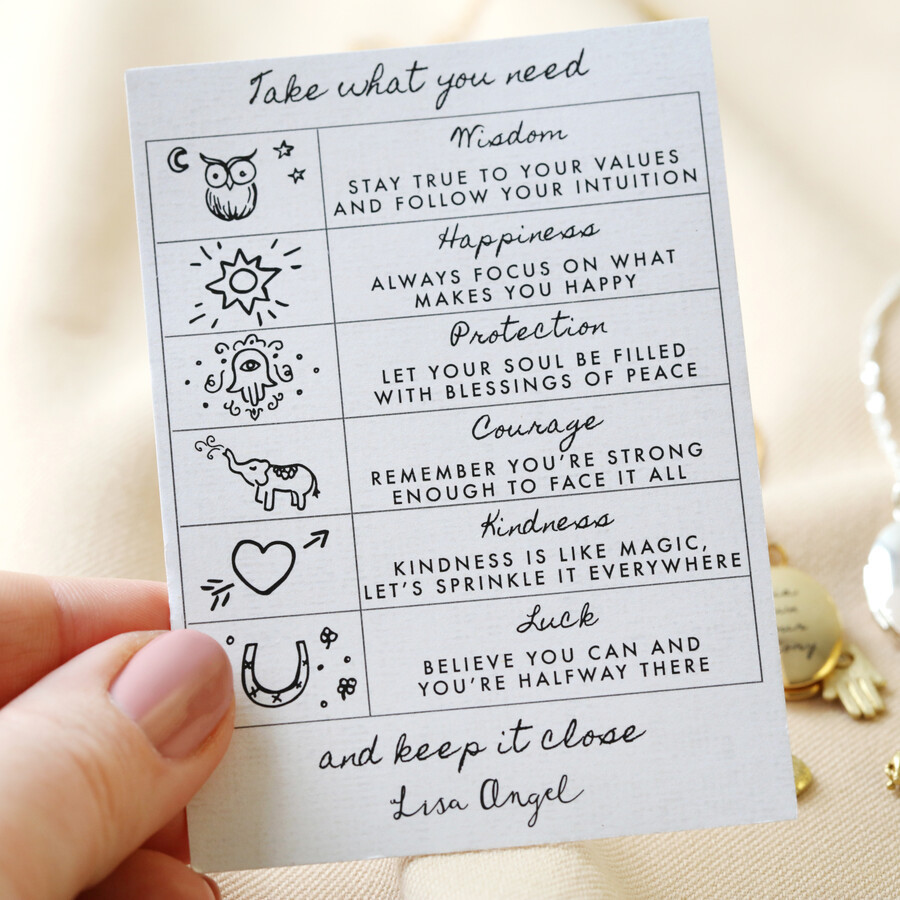 Take what you need
Wisdom
STAY TRUE TO YOUR VALUES
AND FOLLOW YOUR INTUITION
Happiness
ALWAYS FOCUS ON WHAT
MAKES YOU HAPPY
Protection
LET YOUR SOUL BE FILLED
WITH BLESSINGS OF PEACE
Courage
REMEMBER YOU'RE STRONG
ENOUGH TO FACE IT ALL
Kindness
KINDNESS IS LIKE MAGIC,
LET'S SPRINKLE IT EVERYWHERE
Luck
BELIEVE YOU CAN AND
YOU'RE HALFWAY THERE
and keep it close
Lisa Angel